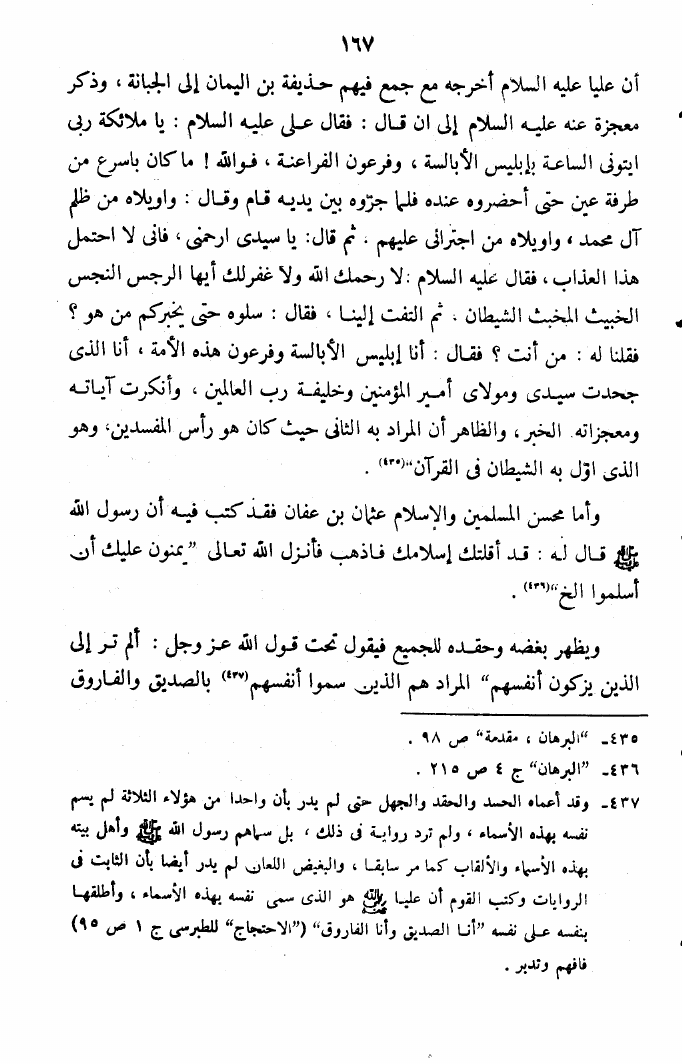 ١٦٧
أن عليا عليه السلام أخرجه مع جمع فيهم حذيفة بن اليمان إلى الجبانة ، وذكر
معجزة عنه عليه السلام إلى ان قال : فقال على عليه السلام : يا ملائكة ربى
ايتونى الساعة بإبليس الأبالسة ، وفرعون الفراعنة ، فوالله ! ما كان باسرع من
طرفة عين حتى أحضروه عنده فلما جرّوه بين يديه قام وقال : واويلاه من ظلم
آل محمد ، واويلاه من اجترائى عليهم . ثم قال: يا سيدى ارحمنى ، فانى لا احتمل
هذا العذاب ، فقال عليه السلام : لا رحمك الله ولا غفرلك أيها الرجس النجس
الخبيث المخبث الشيطان . ثم التفت إلينا ، فقال : سلوه حتى يخبركم من هو ؟
فقلنا له : من أنت ؟ فقال : أنا إبليس الأبالسة وفرعون هذه الأمة ، أنا الذى
جحدت سيدى ومولاى أمير المؤمنين وخليفة رب العالمين ، وأنكرت آياته
ومعجزاته. الخبر ، والظاهر أن المراد به الثانى حيث كان هو رأس المفسدين، وهو
الذى اوّل به الشيطان فى القرآن"(٤٣٥) .
وأما محسن المسلمين والإسلام عثمان بن عفان فقد كتب فيه أن رسول الله
ﷺ قال له : قد أقلتك إسلامك فاذهب فأنزل الله تعالى "يمنون عليك أن
أسلموا الخ"(٤٣٦) .
ويظهر بغضه وحقده للجميع فيقول تحت قول الله عز وجل : ألم تر إلى
الذين يزكون أنفسهم" المراد هم الذين سموا أنفسهم(٤٣٧) بالصديق والفاروق
٤٣٥ـ "البرهان ، مقدمة" ص ٩٨ .
٤٣٦ـ "البرهان" ج ٤ ص ٢١٥ .
٤٣٧ـ وقد أعماه الحسد والحقد والجهل حتى لم يدر بأن واحدا من هؤلاء الثلاثة لم يسم
نفسه بهذه الأسماء ، ولم ترد رواية فى ذلك ، بل سماهم رسول الله ﷺ وأهل بيته
بهذه الأسماء والألقاب كما مر سابقا ، والبغيض اللعان لم يدر أيضا بأن الثابت فى
الروايات وكتب القوم أن عليا رضي الله عنه هو الذى سمى نفسه بهذه الأسماء ، وأطلقها
بنفسه على نفسه "أنا الصديق وأنا الفاروق" ("الاحتجاج" للطبرسى ج ١ ص ٩٥)
فافهم وتدبر .